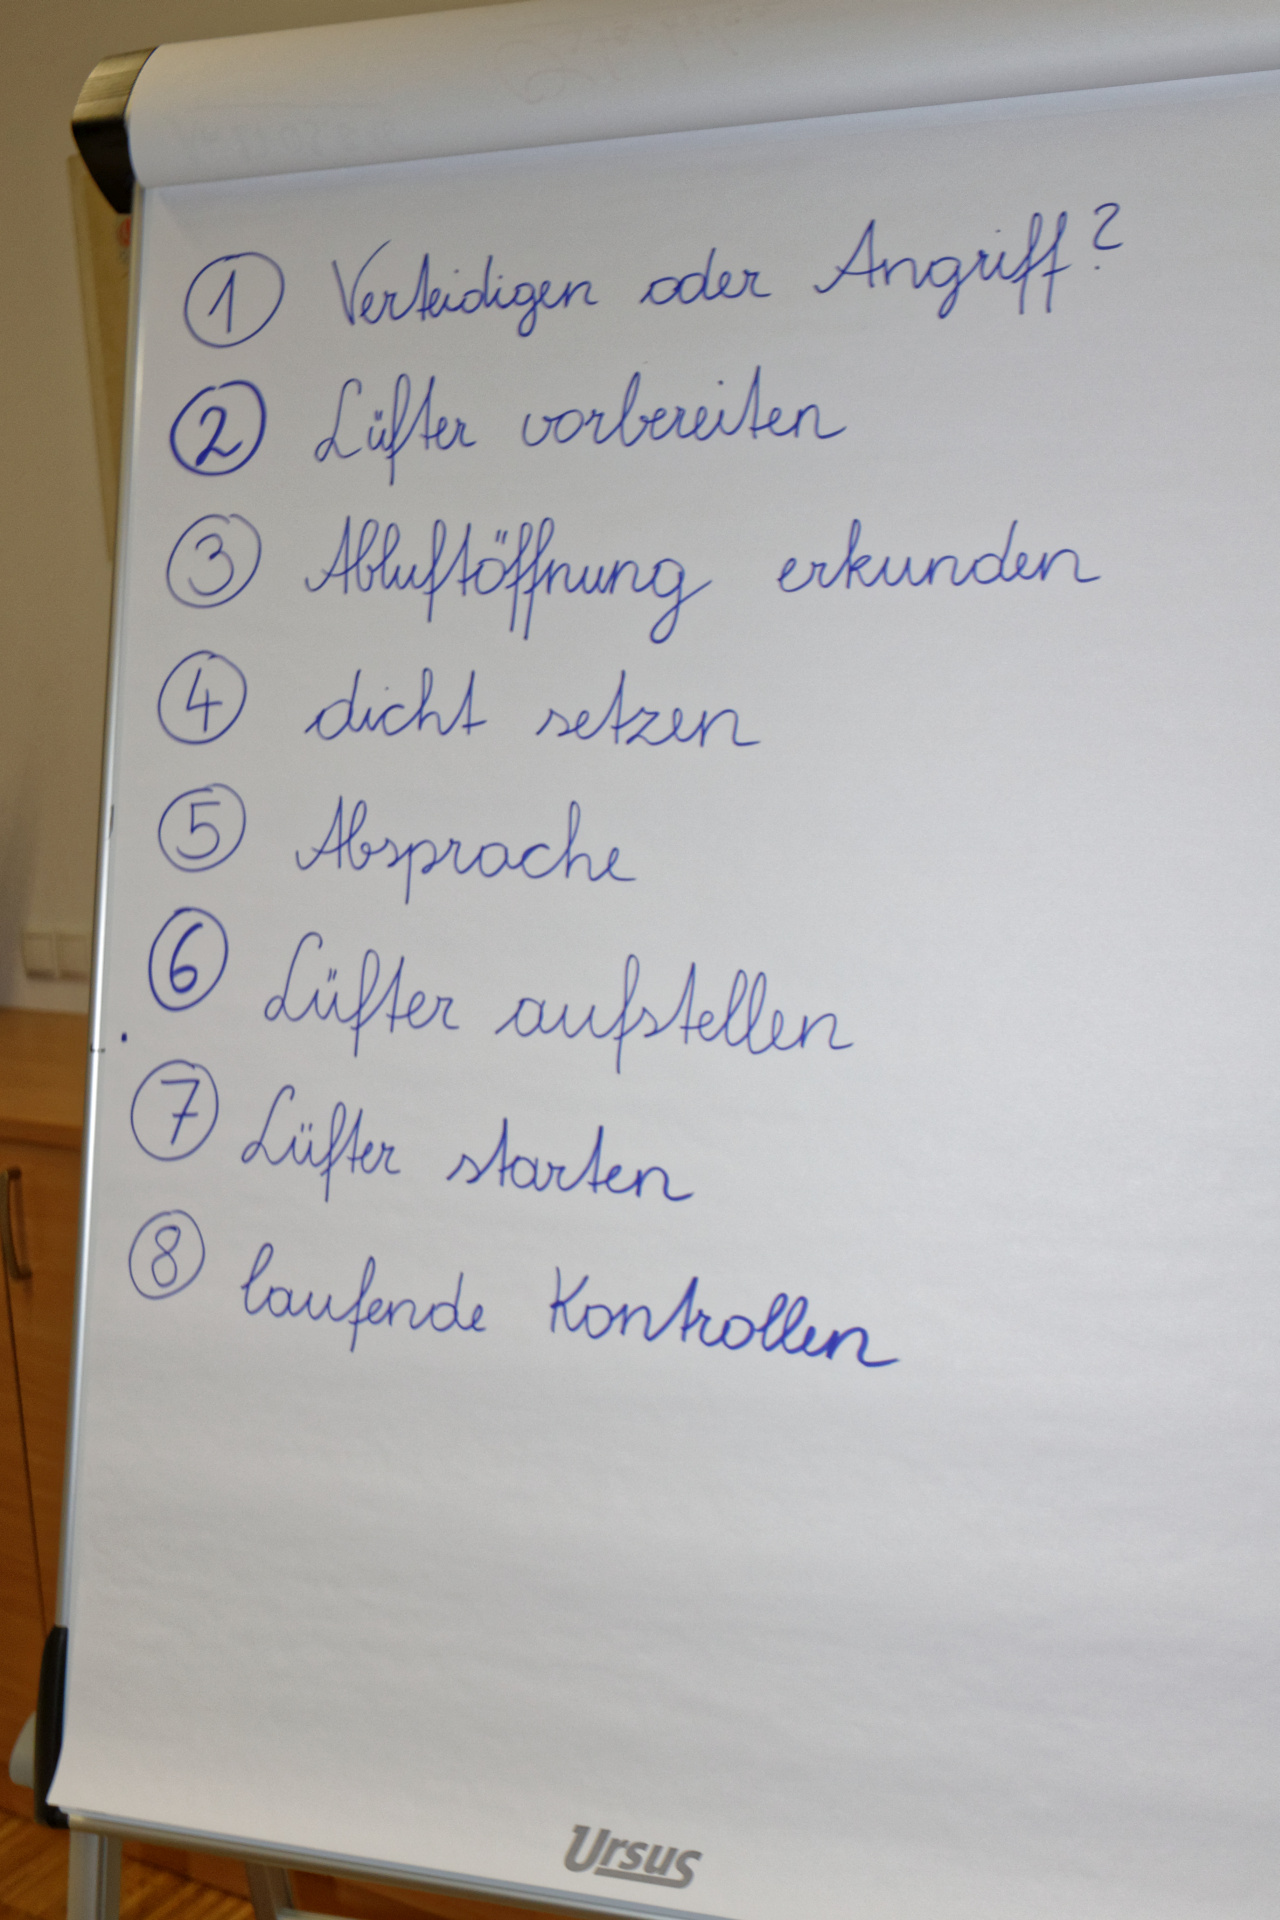 1 Verteidigen oder Angriff?
2 Lüfter vorbereiten
3 Abluftöffnung erkunden
4 dicht setzen
5 Absprache
6 Lüfter aufstellen
7 Lüfter starten
8 laufende Kontrollen
Ursus